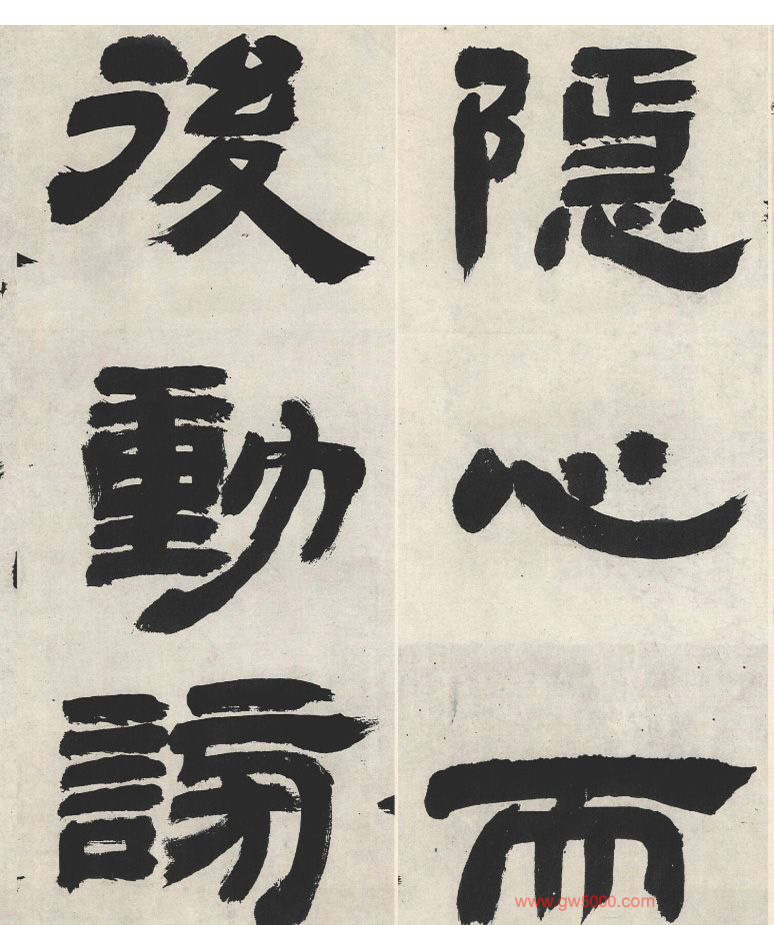 隱心而
後動謗
www.gw5000.com